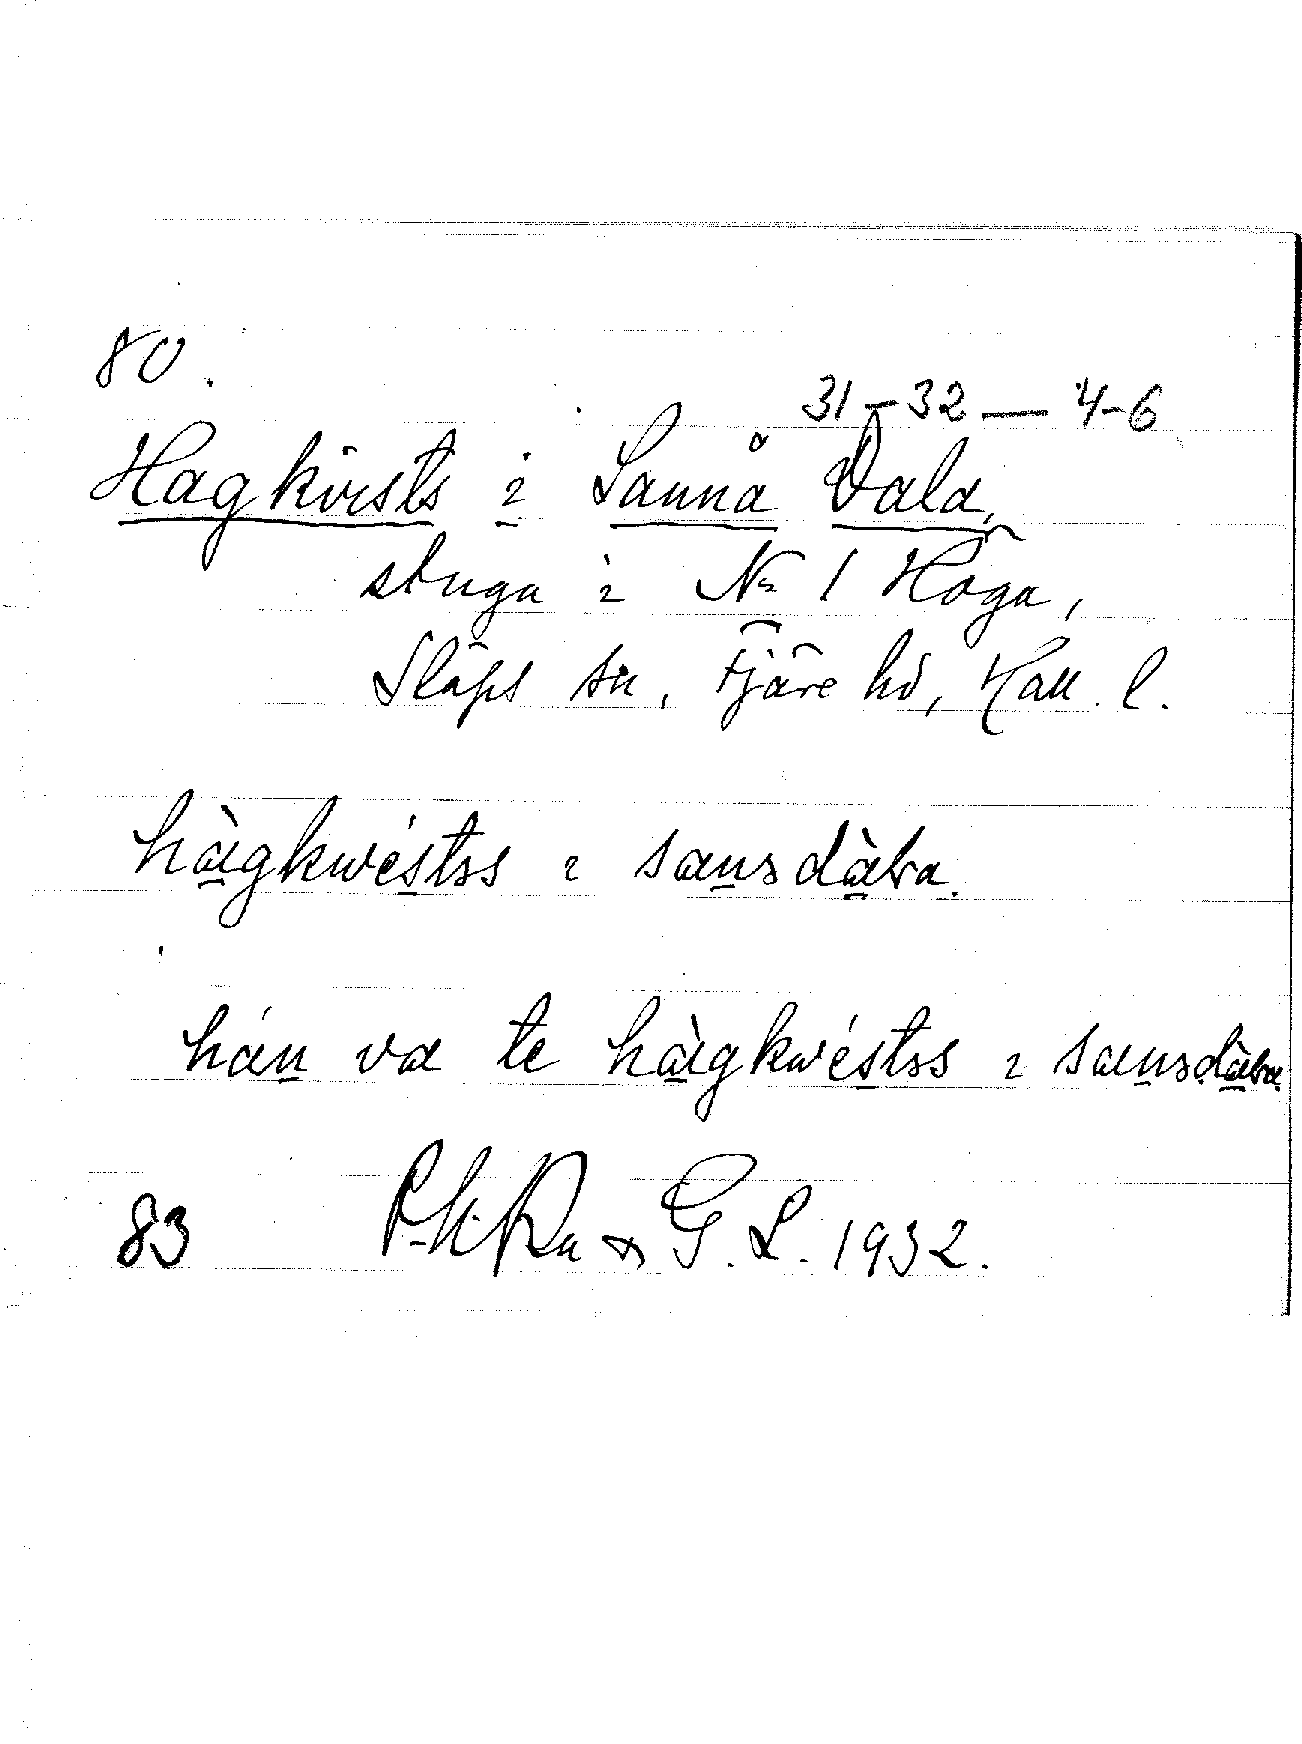 80.
31-32 — 4-6
Hagkvists i Sannå Dala,
stuga i No 1 Haga,
Släps sn, Fjäre hd, Hall. l.
hàgkwéstss i sansdàla.
hán va te hàgkwéstss i sansdàla
83 G. L. 1932.